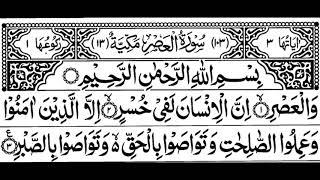 اٰيَاتُهَا ٣ (١٠٣) سُوْرَةُ الْعَصْرِ مَكِّيَّةٌ (١٣) رُكُوْعُهَا ١
بِسْمِ اللّٰهِ الرَّحْمٰنِ الرَّحِيْمِ
وَالْعَصْرِ ۙ﴿١﴾ اِنَّ الْاِنْسَانَ لَفِىْ خُسْرٍ ۙ﴿٢﴾ اِلَّا الَّذِيْنَ اٰمَنُوْا
وَعَمِلُوا الصّٰلِحٰتِ وَتَوَاصَوْا بِالْحَقِّ ۙ۬ وَتَوَاصَوْا بِالصَّبْرِ ﴿٣﴾ ع